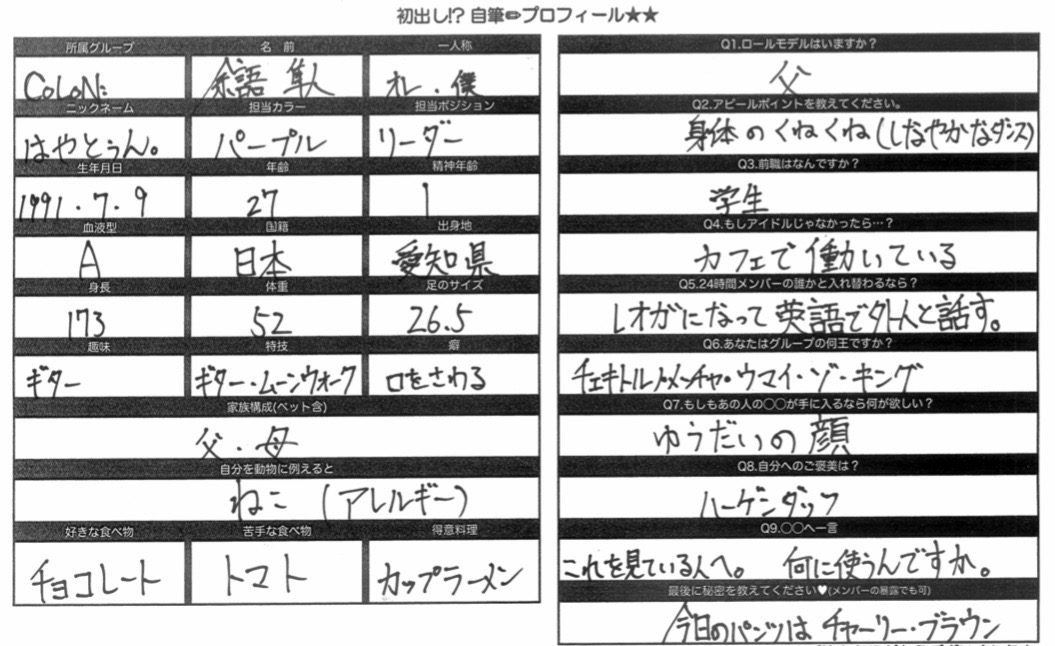 初出し!? 自筆✏プロフィール★★
所属グループ 名 前 一人称
COLON: 余語 隼人 オレ・僕
ニックネーム 担当カラー 担当ポジション
はやとぅん。 パープル リーダー
生年月日 年齢 精神年齢
1991・7・9 27 1
血液型 国籍 出身地
A 日本 愛知県
身長 体重 足のサイズ
173 52 26.5
趣味 特技 癖
ギター ギター・ムーンウォーク 口をさわる
家族構成(ペット含)
父・母
自分を動物に例えると
ねこ (アレルギー)
好きな食べ物 苦手な食べ物 得意料理
チョコレート トマト カップラーメン
Q1.ロールモデルはいますか?
父
Q2.アピールポイントを教えてください。
身体のくねくね(しなやかなダンス)
Q3.前職はなんですか?
学生
Q4.もしアイドルじゃなかったら…?
カフェで働いている
Q5.24時間メンバーの誰かと入れ替わるなら?
レオガになって英語で外人と話す。
Q6.あなたはグループの何王ですか?
チェキトルノメッチャ・ウマイ・ゾ・キング
Q7.もしもあの人の○○が手に入るなら何が欲しい?
ゆうだいの顔
Q8.自分へのご褒美は?
ハーゲンダッツ
Q9.○○へ一言
これを見ている人へ。 何に使うんですか。
最後に秘密を教えてください♥(メンバーの暴露でも可)
今日のパンツはチャーリー・ブラウン